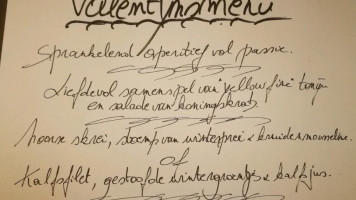 Valentijnsmenu
Sprankelend aperitief vol passie.
Liefdevol samenspel van "yellow fin" tonijn
en salade van koningskrab
Noorse skrei, stoemp van winterprei & kruidenmousseline.
of
Kalfsfilet, gestoofde wintergroentjes & kalfsjus.